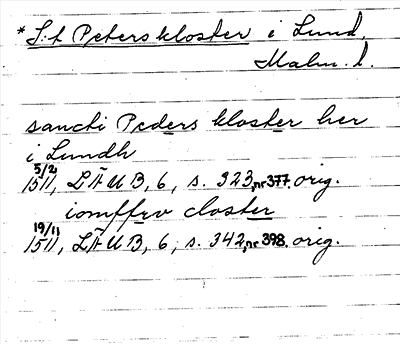 *S:t Peters kloster i Lund,
Malm. l.
sancti Peders kloster her
i Lundh
5/2
1511, LÄUB, 6, s. 323, nr 377. orig.
iomffrv closter
19/11
1511, LÄUB, 6, s. 342, nr 398. orig.